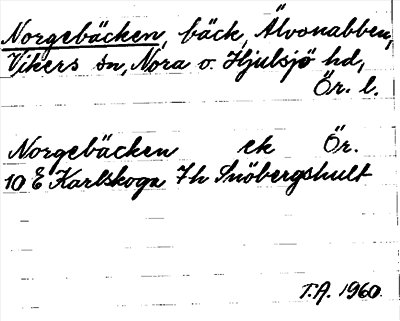 Norgebäcken, bäck, Älvonabben,
Vikers sn, Nora o. Hjulsjö hd,
Ör. l.
Norgebäcken ek Ör.
10 E Karlskoga 7h Snöbergshult
T.A. 1960.